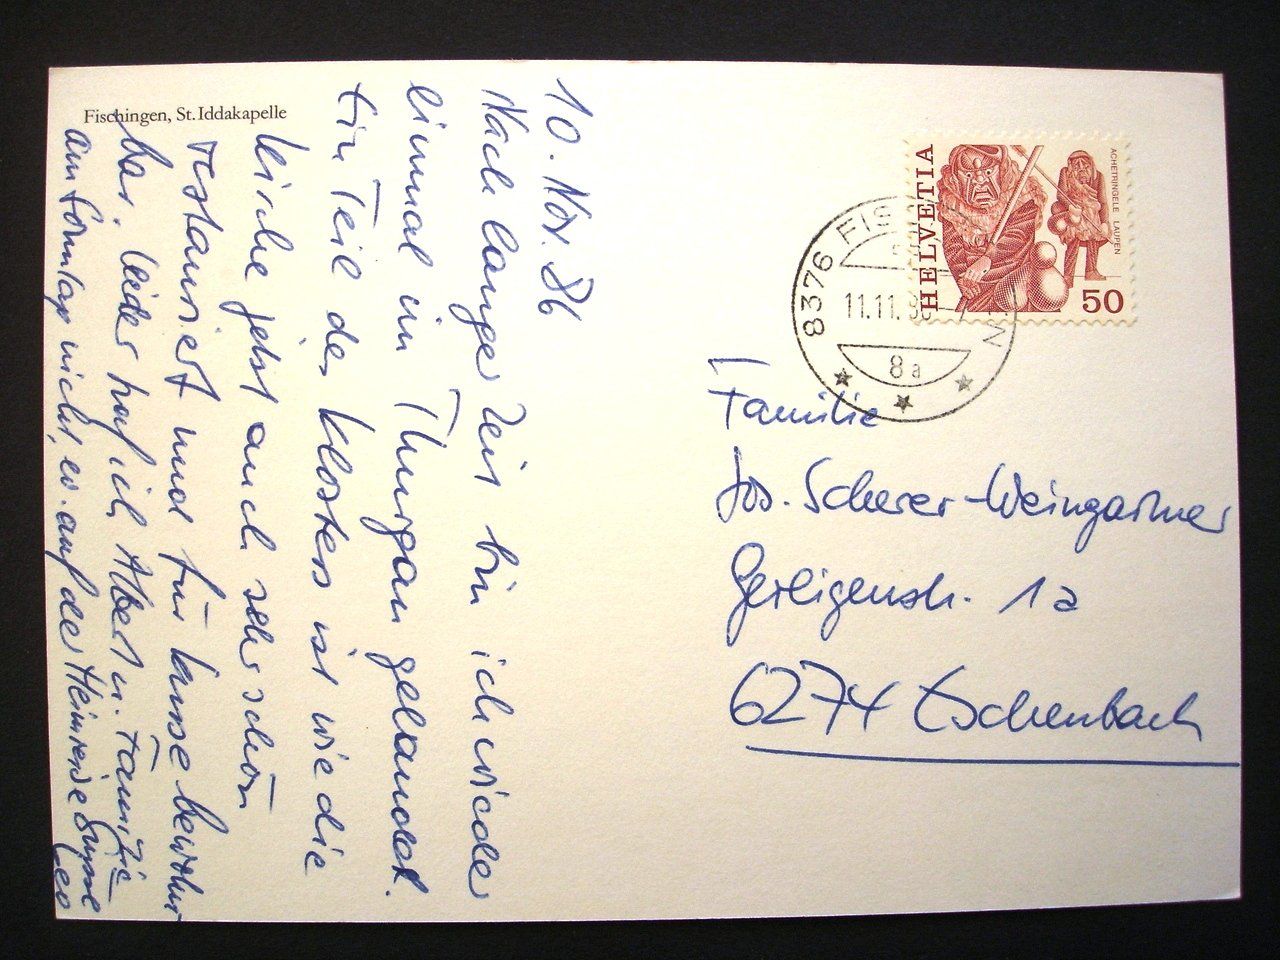 Fischingen, St. Iddakapelle
10. Nov. 86
Nach langer Zeit bin ich wieder
einmal im Thurgau gelandet.
Ein Teil des Klosters ist wie die
Kirche jetzt auch sehr schön
restauriert und für Kurse bewohn
bar. Leider traf ich Albert u. Familie
am Sonntag nicht, ev. auf der Heimreise Grüsse
Leo
HELVETIA
ACHETRINGELE LAUPEN
50
8376 FISCHINGEN
11.11.86
8a
Familie
Jos. Scherer-Weingartner
Gerligenstr. 1a
6274 Eschenbach